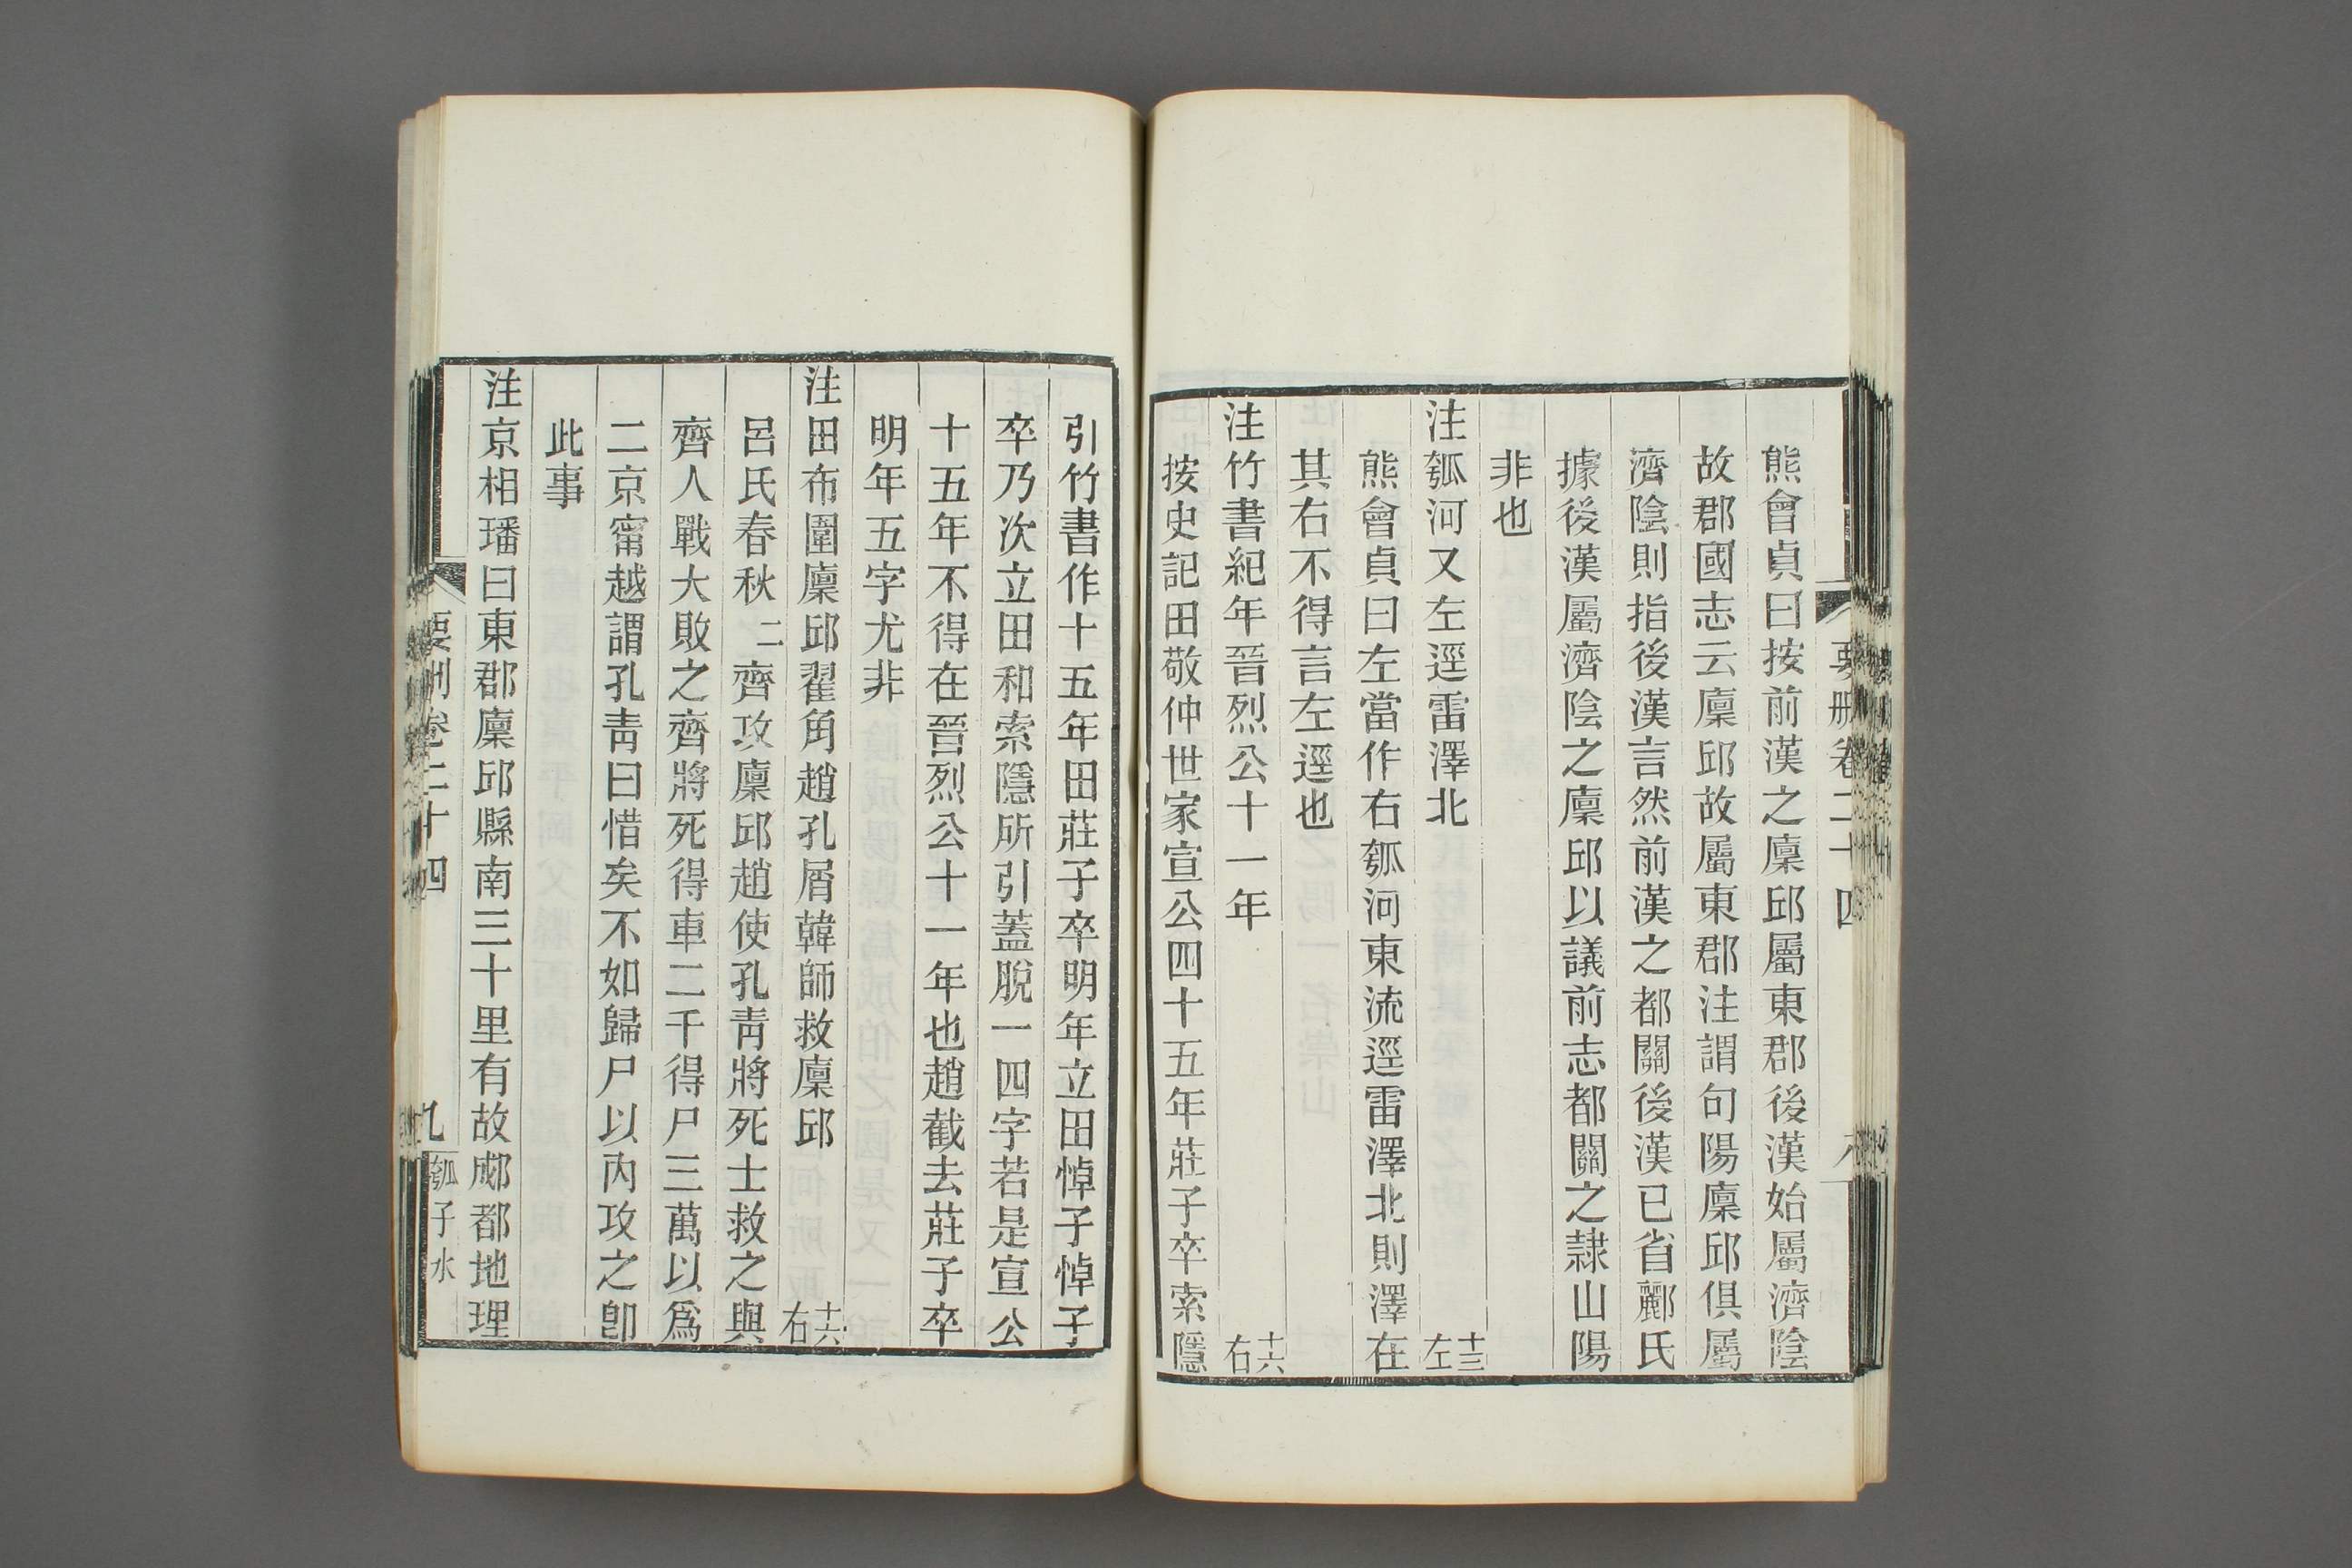 要刪卷二十四
熊會貞曰按前漢之廩邱屬東郡後漢始屬濟陰
故郡國志云廩邱故屬東郡注謂句陽廩邱俱屬
濟陰則指後漢言然前漢之都關後漢已省酈氏
據後漢屬濟陰之廩邱以議前志都關之隸山陽
非也
注瓠河又左逕雷澤北 十三左
熊會貞曰左當作右瓠河東流逕雷澤北則澤在
其右不得言左逕也
注竹書紀年晉烈公十一年 十六右
按史記田敬仲世家宣公四十五年莊子卒索隱
引竹書作十五年田莊子卒明年立田悼子悼子
卒乃次立田和索隱所引蓋脫一四字若是宣公
十五年不得在晉烈公十一年也趙截去莊子卒
明年五字尤非
注田布圍廩邱翟角趙孔屑韓師救廩邱 十六右
呂氏春秋二齊攻廩邱趙使孔青將死士救之與
齊人戰大敗之齊將死得車二千得尸三萬以爲
二京甯越謂孔青曰惜矣不如歸尸以內攻之卽
此事
注京相璠曰東郡廩邱縣南三十里有故郕都地理
要刪卷二十四 九 瓠子水